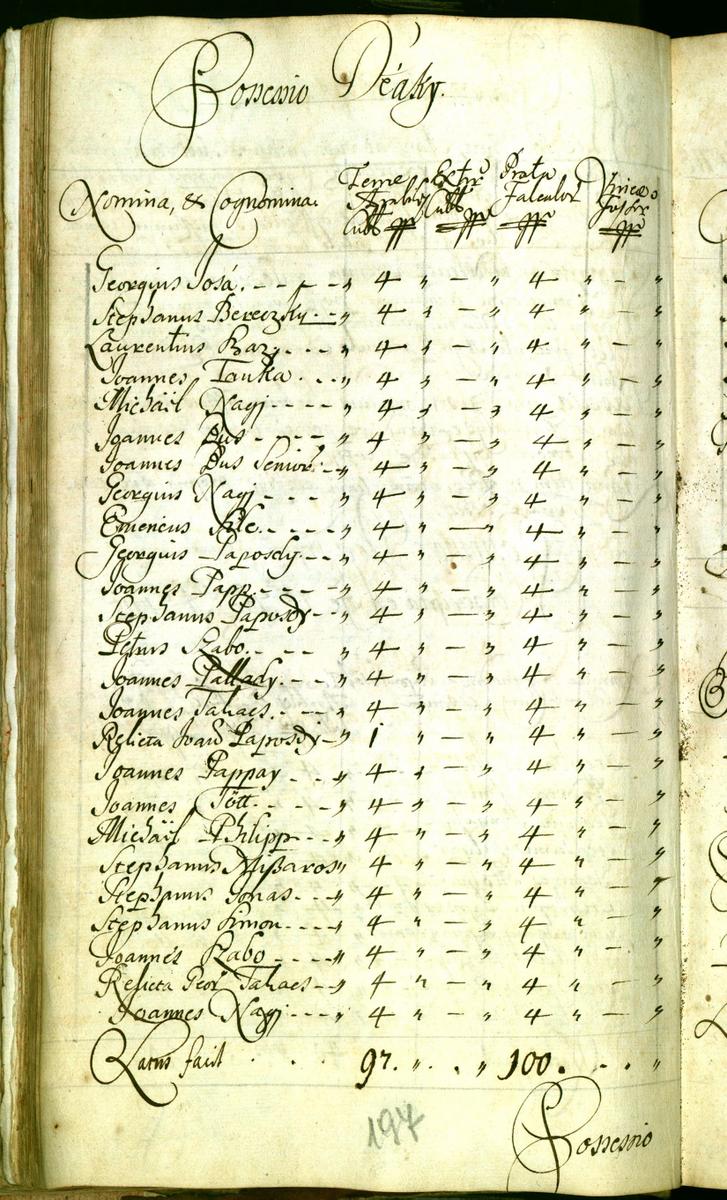 Possessio Deáky.
Nomina, & Cognomina.
Terræ Arabiles Cub. Extir. Cub. Prata Falcator. Vineæ Fossor.
Georgius Josá. " 4 " — " 4 " — "
Stephanus Bereczky. " 4 " — " 4 " — "
Laurentius " 4 " — " 4 " — "
Joannes Tanka " 4 " — " 4 " — "
Michäel Nagj " 4 " — " 4 " — "
Joannes Bus " 4 " — " 4 " — "
Joannes Bus Senior " 4 " — " 4 " — "
Georgius Nagj " 4 " — " 4 " — "
Emericus " 4 " — " 4 " — "
Georgius Paposdy " 4 " — " 4 " — "
Joannes Papp " 4 " — " 4 " — "
Stephanus Paposdy " 4 " — " 4 " — "
Petrus Szabo " 4 " — " 4 " — "
Joannes Pallady " 4 " — " 4 " — "
Joannes Takacs " 4 " — " 4 " — "
Relicta Joañ Paposdy " 1 " — " 4 " — "
Joannes Pappay " 4 " — " 4 " — "
Joannes Tött " 4 " — " 4 " — "
Michäel Philipp " 4 " — " 4 " — "
Stephanus Mißaros " 4 " — " 4 " — "
Stephanus Jonas " 4 " — " 4 " — "
Stephanus Simon " 4 " — " 4 " — "
Joannes Szabo " 4 " — " 4 " — "
Relicta Geor Takacs " 4 " — " 4 " — "
Joannes Nagj " 4 " — " 4 " — "
Latus facit 97. " . " 100. — "
197
Possessio